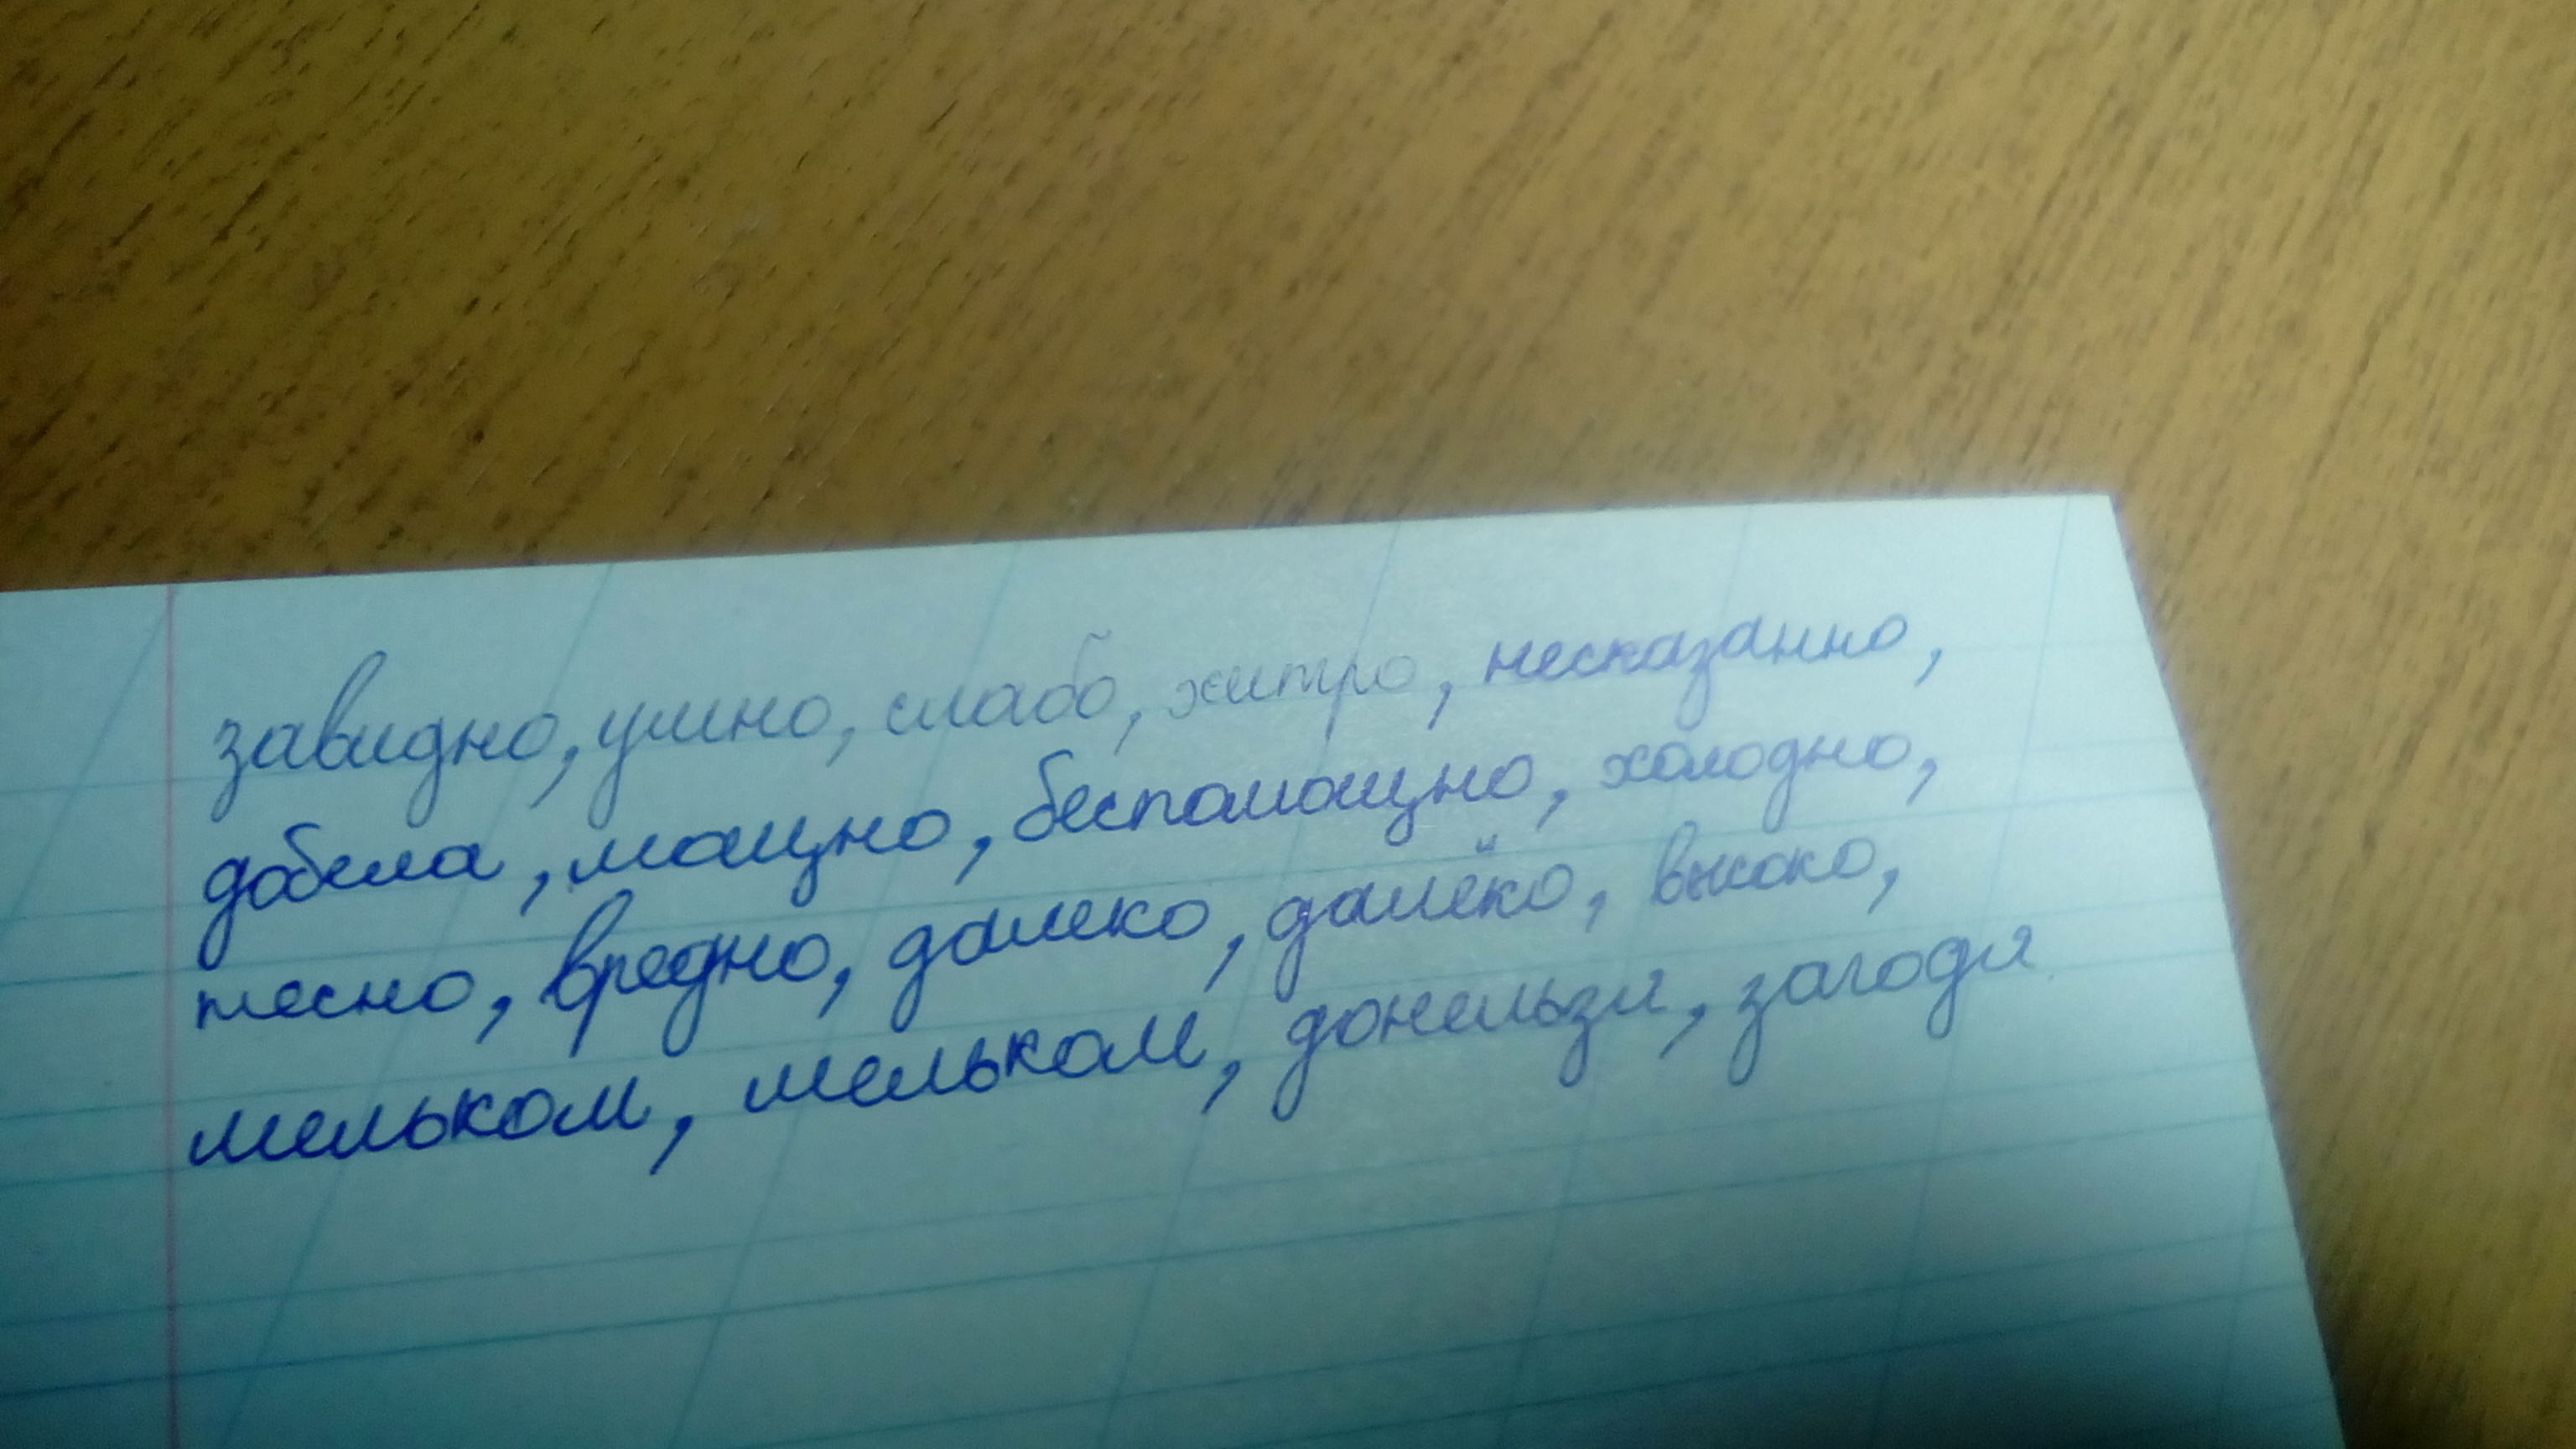 завидно, умно, слабо, хитро, несказанно,
добела, мощно, беспомощно, холодно,
тесно, вредно, далеко, далёко, высоко,
мельком, мельком, донельзя, загодя